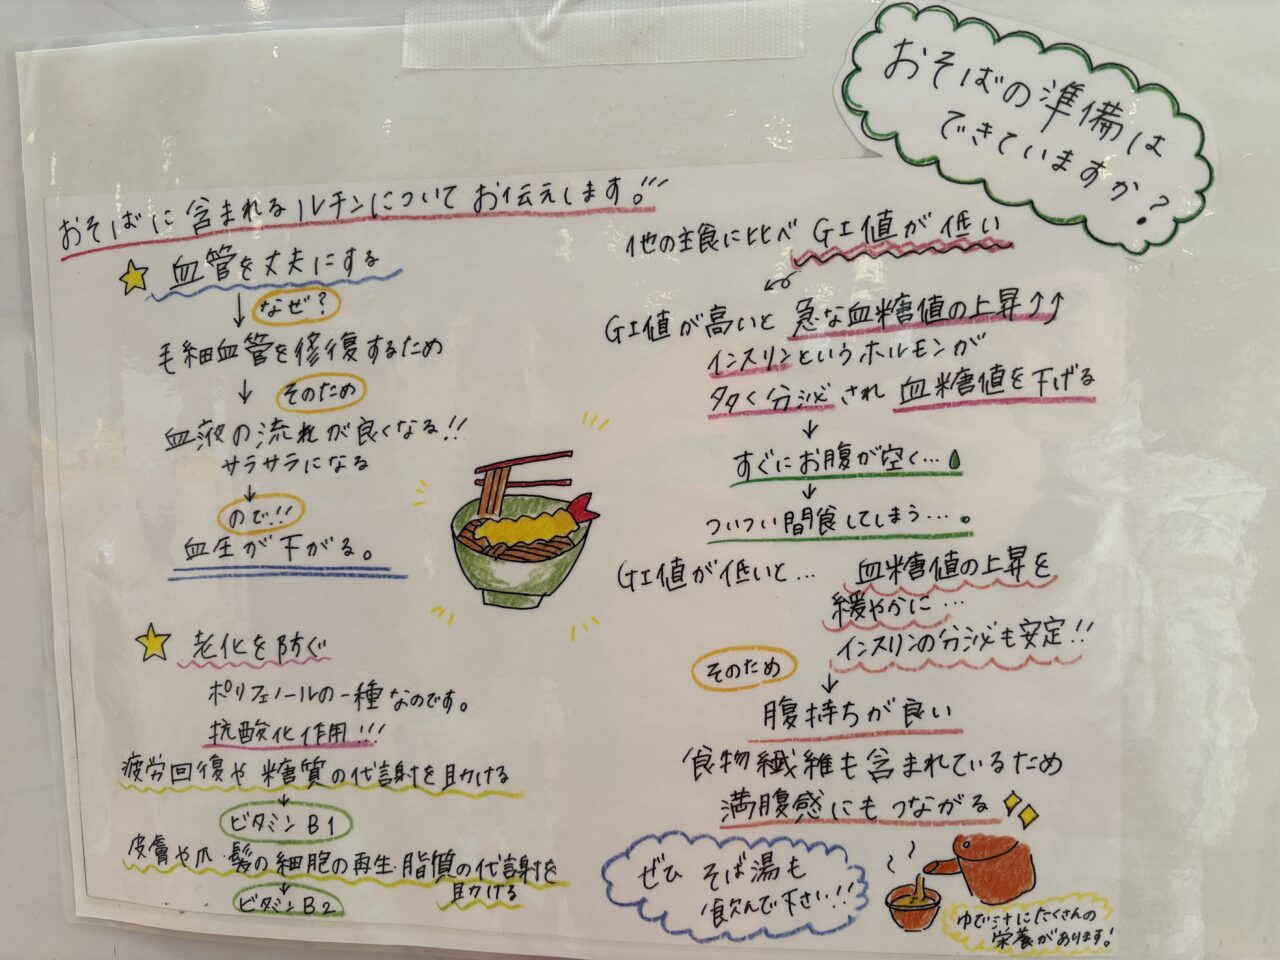 おそばの準備は
できていますか?
おそばに含まれるルチンについてお伝えします!!!
血管を丈夫にする
なぜ?
毛細血管を修復するため
そのため
血液の流れが良くなる!!
サラサラになる
ので!!
血圧が下がる。
老化を防ぐ
ポリフェノールの一種なのです。
抗酸化作用!!!
疲労回復や糖質の代謝を助ける
ビタミンB1
皮膚や爪・髪の細胞の再生・脂質の代謝を
助ける
ビタミンB2
他の主食に比べ GI値が低い
GI値が高いと 急な血糖値の上昇↑↑
インスリンというホルモンが
多く分泌され 血糖値を下げる
すぐにお腹が空く…
ついつい間食してしまう…。
GI値が低いと… 血糖値の上昇を
緩やかに…
インスリンの分泌も安定!!
そのため
腹持ちが良い
食物繊維も含まれているため
満腹感にもつながる
ぜひ そば湯も
飲んで下さい!!
ゆで汁にたくさんの
栄養があります!